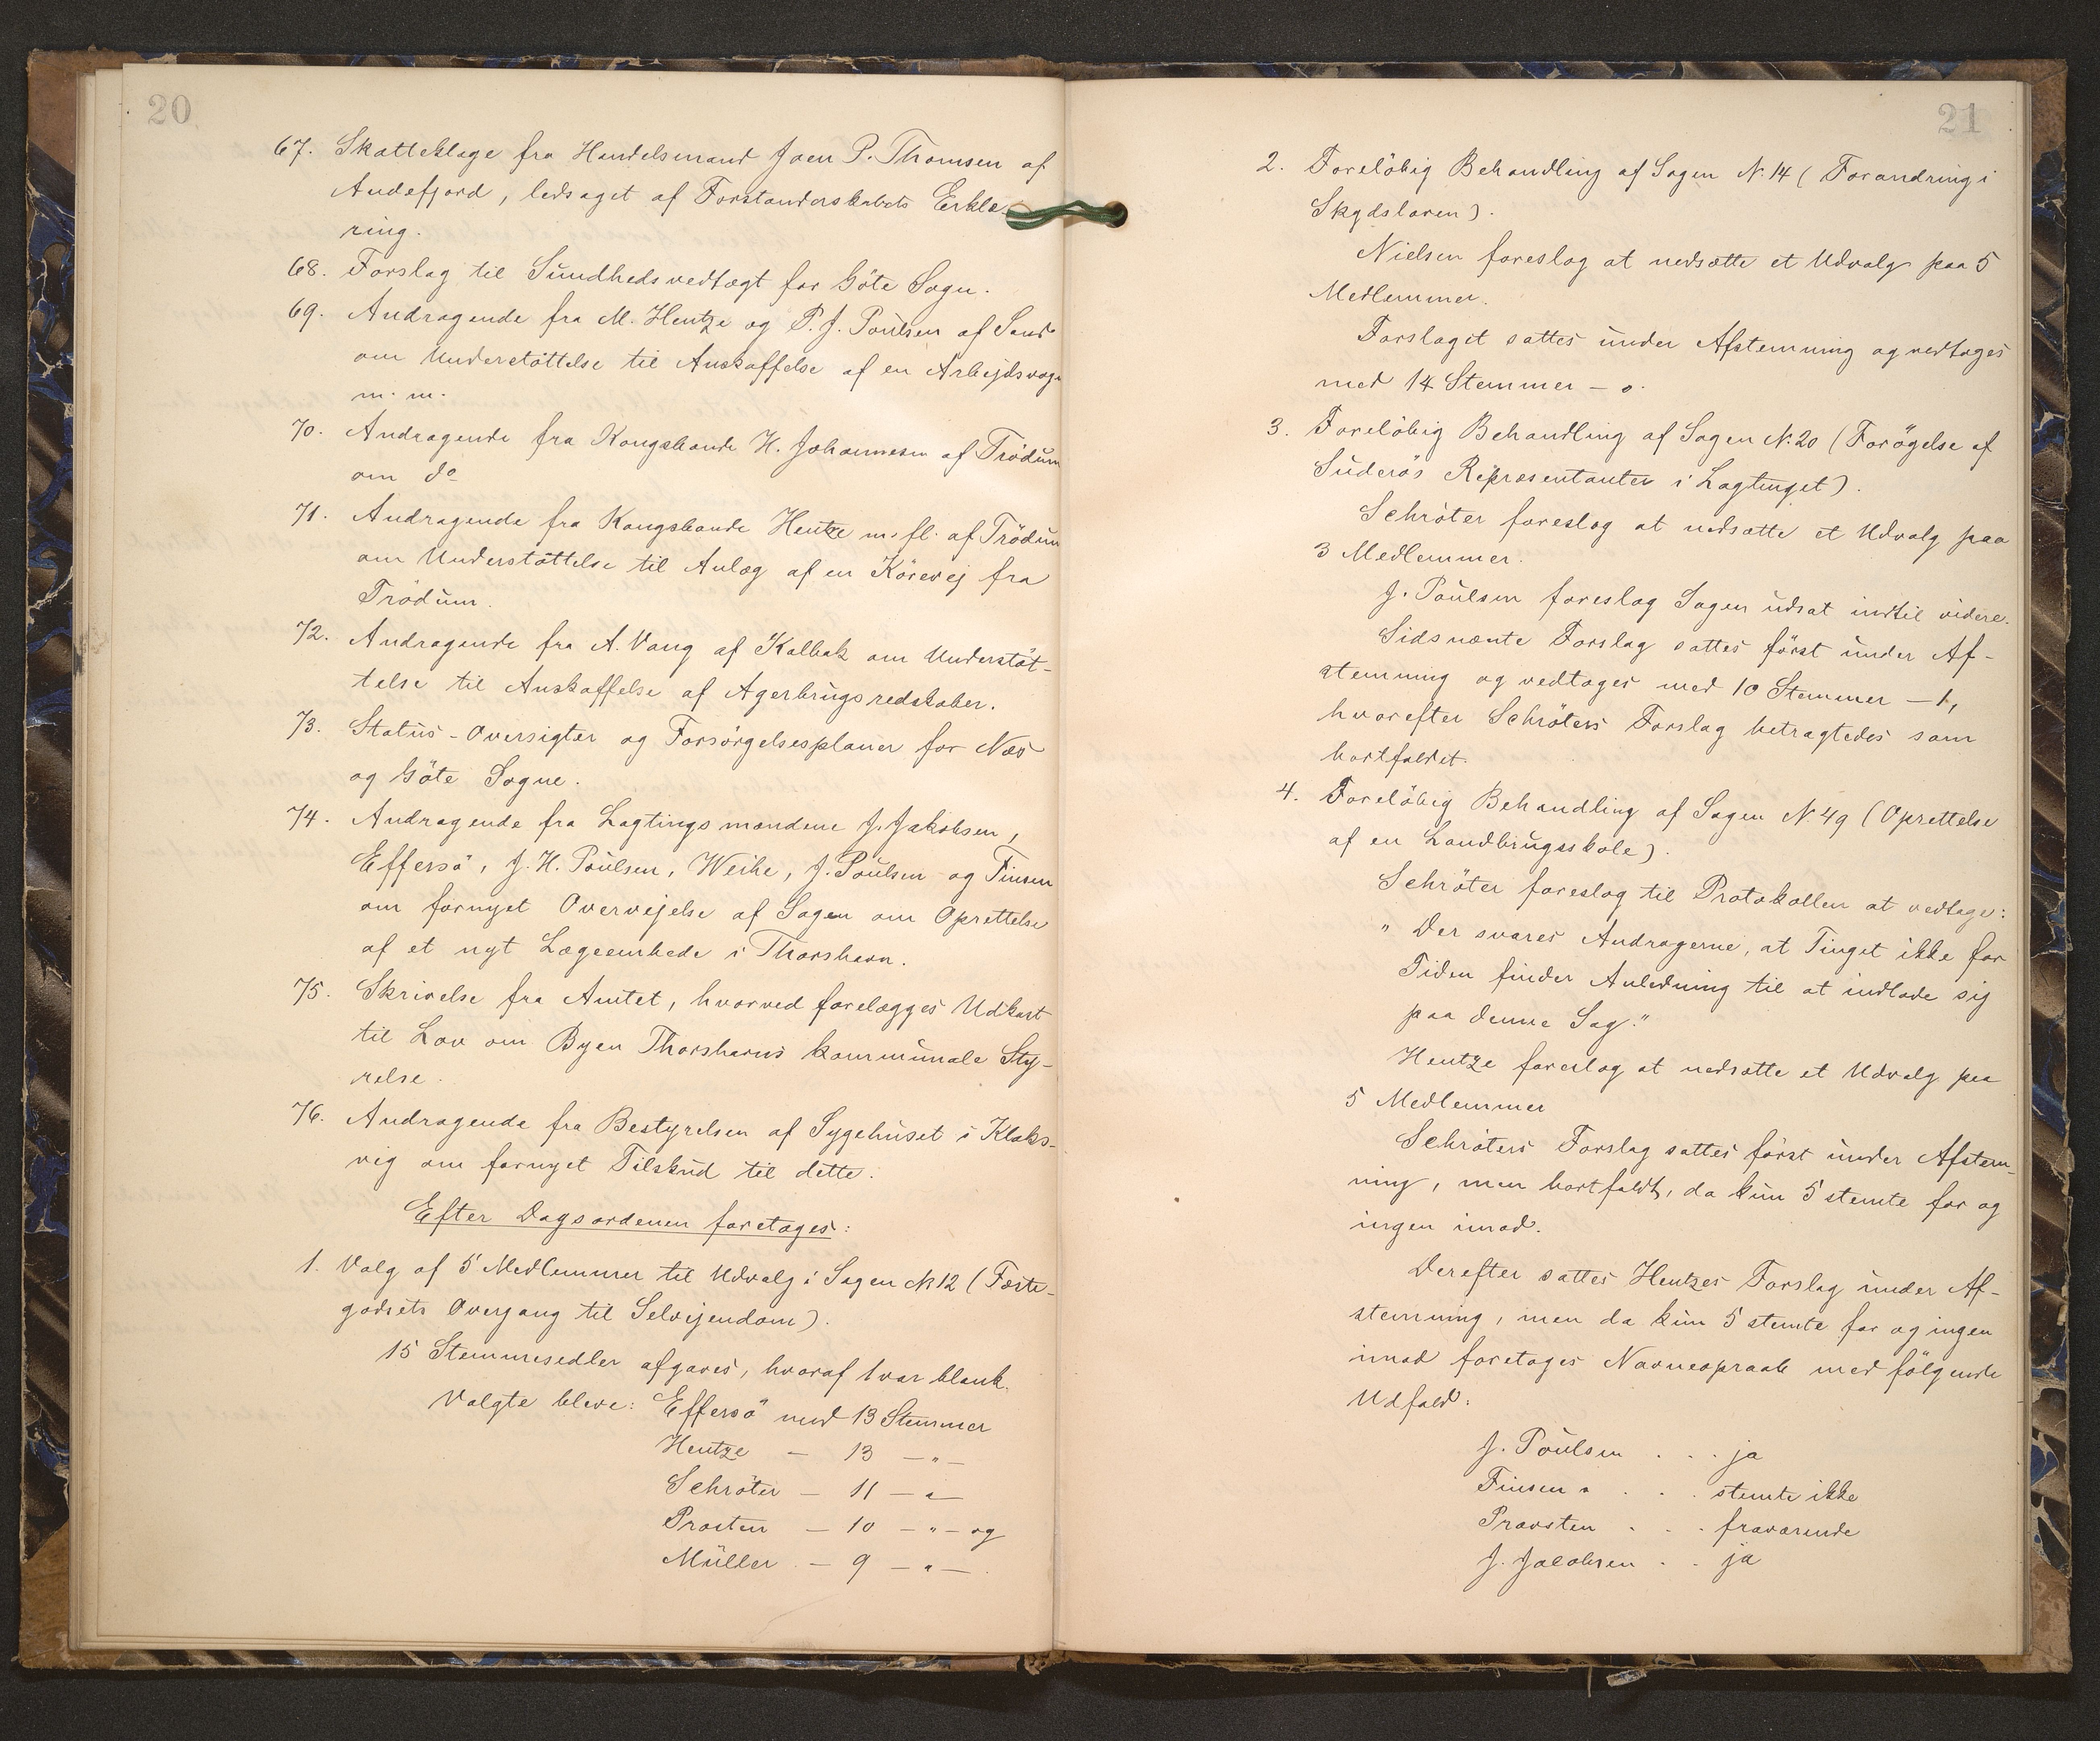 20
67. Skatteklage fra Handelsmand Joen P. Thomsen af
Andefjord, ledsaget af Forstanderskabets Erklæ-
ring.
68. Forslag til Sundhedsvedtægt for Göte Sogn.
69. Andragende fra M. Hentze og P. J. Poulsen af Sand
om Understöttelse til Anskaffelse af en Arbejdsvogn
m. m.
70. Andragende fra Kongsbonde H. Johannesen af Trödum
om do
71. Andragende fra Kongsbonde Hentze m. fl. af Trödum
om Understöttelse til Anlæg af en Körevej fra
Trödum.
72. Andragende fra A. Vang af Kalbak om Understöt-
telse til Anskaffelse af Agerbrugsredskaber.
73. Status-Oversigter og Forsörgelsesplaner for Næs
og Göte Sogne.
74. Andragende fra Lagtingsmændene J. Jakobsen,
Effersö, J. H. Poulsen, Weihe, J. Poulsen og Finsen
om fornyet Overvejelse af Sagen om Oprettelse
af et nyt Lægeembede i Thorshavn.
75. Skrivelse fra Amtet, hvorved forelægges Udkast
til Lov om Byen Thorshavns kommunale Sty-
relse.
76. Andragende fra Bestyrelsen af Sygehuset i Klaks-
vig om fornyet Tilskud til dette.
Efter Dagsordenen foretoges:
1. Valg af 5 Medlemmer til Udvalg i Sagen N. 12 (Fæste-
godsets Overgang til Selvejendom).
15 Stemmesedler afgaves, hvoraf 1 var blank.
Valgte bleve: Effersö med 13 Stemmer
Hentze — 13 — " —
Schröter — 11 — " —
Provsten — 10 — " — og
Müller — 9 — " — .
21
2. Forelöbig Behandling af Sagen N. 14 (Forandring i
Skydsloven).
Nielsen foreslog at nedsætte et Udvalg paa 5
Medlemmer.
Forslaget sattes under Afstemning og vedtoges
med 14 Stemmer — 0.
3. Forelöbig Behandling af Sagen N. 20 (Forögelse af
Suderös Repræsentanter i Lagtinget).
Schröter foreslog at nedsætte et Udvalg paa
3 Medlemmer.
J. Poulsen foreslog Sagen udsat indtil videre.
Sidsnævnte Forslag sattes först under Af-
stemning og vedtoges med 10 Stemmer — 1,
hvorefter Schröters Forslag betragtedes som
bortfaldet.
4. Forelöbig Behandling af Sagen N. 49 (Oprettelse
af en Landbrugsskole).
Schröter foreslog til Protokollen at vedtage:
" Der svares Andragerne, at Tinget ikke for
Tiden finder Anledning til at indlade sig
paa denne Sag."
Hentze foreslog at nedsætte et Udvalg paa
5 Medlemmer
Schröters Forslag sattes först under Afstem-
ning, men bortfaldt, da kun 5 stemte for og
ingen imod.
Derefter sattes Hentzes Forslag under Af-
stemning, men da kun 5 stemte for og ingen
imod foretoges Navneopraab med fölgende
Udfald:
J. Poulsen . . . ja
Finsen . . . stemte ikke
Provsten . . . fraværende
J. Jacobsen . . ja